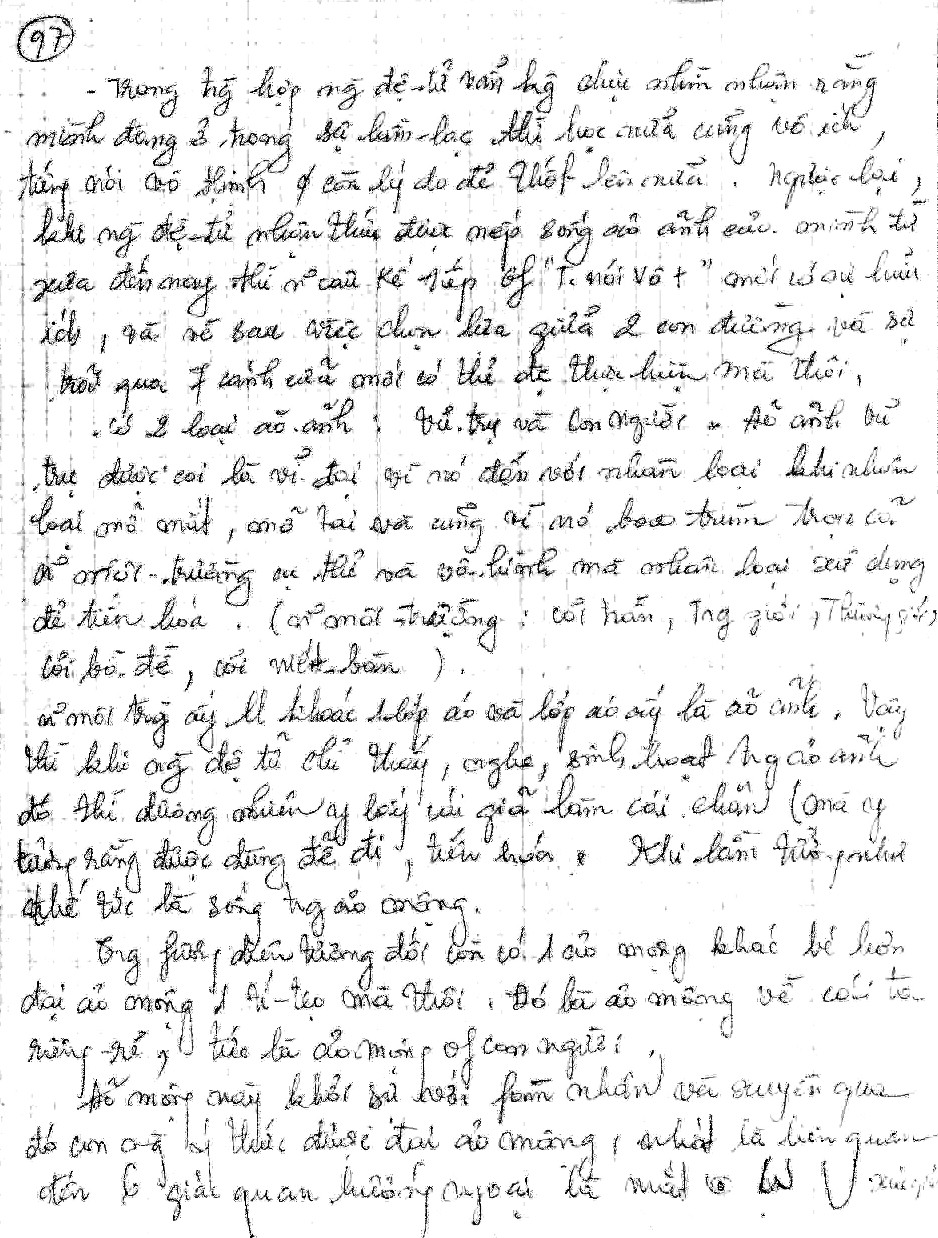 97
- Trong tg hợp ng đệ-tử vẫn kg chịu nhìn nhận rằng
mình đang ở trong sự lầm-lạc thì học nữa cũng vô ích,
tiếng nói vô thinh ø còn lý do để thốt lên nữa. Ngược lại,
khi ng đệ-tử nhận thức được nếp sống ảo ảnh của mình từ
xưa đến nay thì n~ câu kế tiếp of "T. nói Vô t" mới có sự hữu
ích, và về sau việc chọn lựa giữa 2 con đường và sự
trải qua 7 cánh cửa mới có thể đc thực hiện mà thôi,
. Có 2 loại ảo-ảnh: Vũ-trụ và Con người. Ảo ảnh vũ
trụ được coi là vĩ-đại vì nó đến với nhân loại khi nhân
loại mở mắt, mở tai và cũng vì nó bao trùm trọn cả
n~ môi-trường cụ thể và vô-hình mà nhân loại sử dụng
để tiến hóa. (n~ môi-trường: cõi trần, Trg giới, Thượng giới,
cõi bồ-đề, cõi niết-bàn).
n~ môi trg ấy khoác 1 lớp áo và lớp áo ấy là ảo ảnh. Vậy
thì khi ng đệ tử chỉ thấy, nghe, sinh hoạt trg ảo ảnh
đó thì đương nhiên y lấy cái giả làm cái chân (mà y
tưởng rằng được dùng để đi, tiến hóa. Khi lầm tưởng như
thế tức là sống trg ảo mộng.
Trg phương diện tương đối còn có 1 ảo mộng khác bé hơn
đại ảo mộng 1 tí-tẹo mà thôi. Đó là ảo mộng về cái ta
riêng-rẽ, tức là ảo mộng of con người.
Ảo mộng này khởi sự với phàm nhân và xuyên qua
đó con ng ý thức được đại ảo mộng, nhất là liên quan
đến giác quan hướng ngoại là mắt